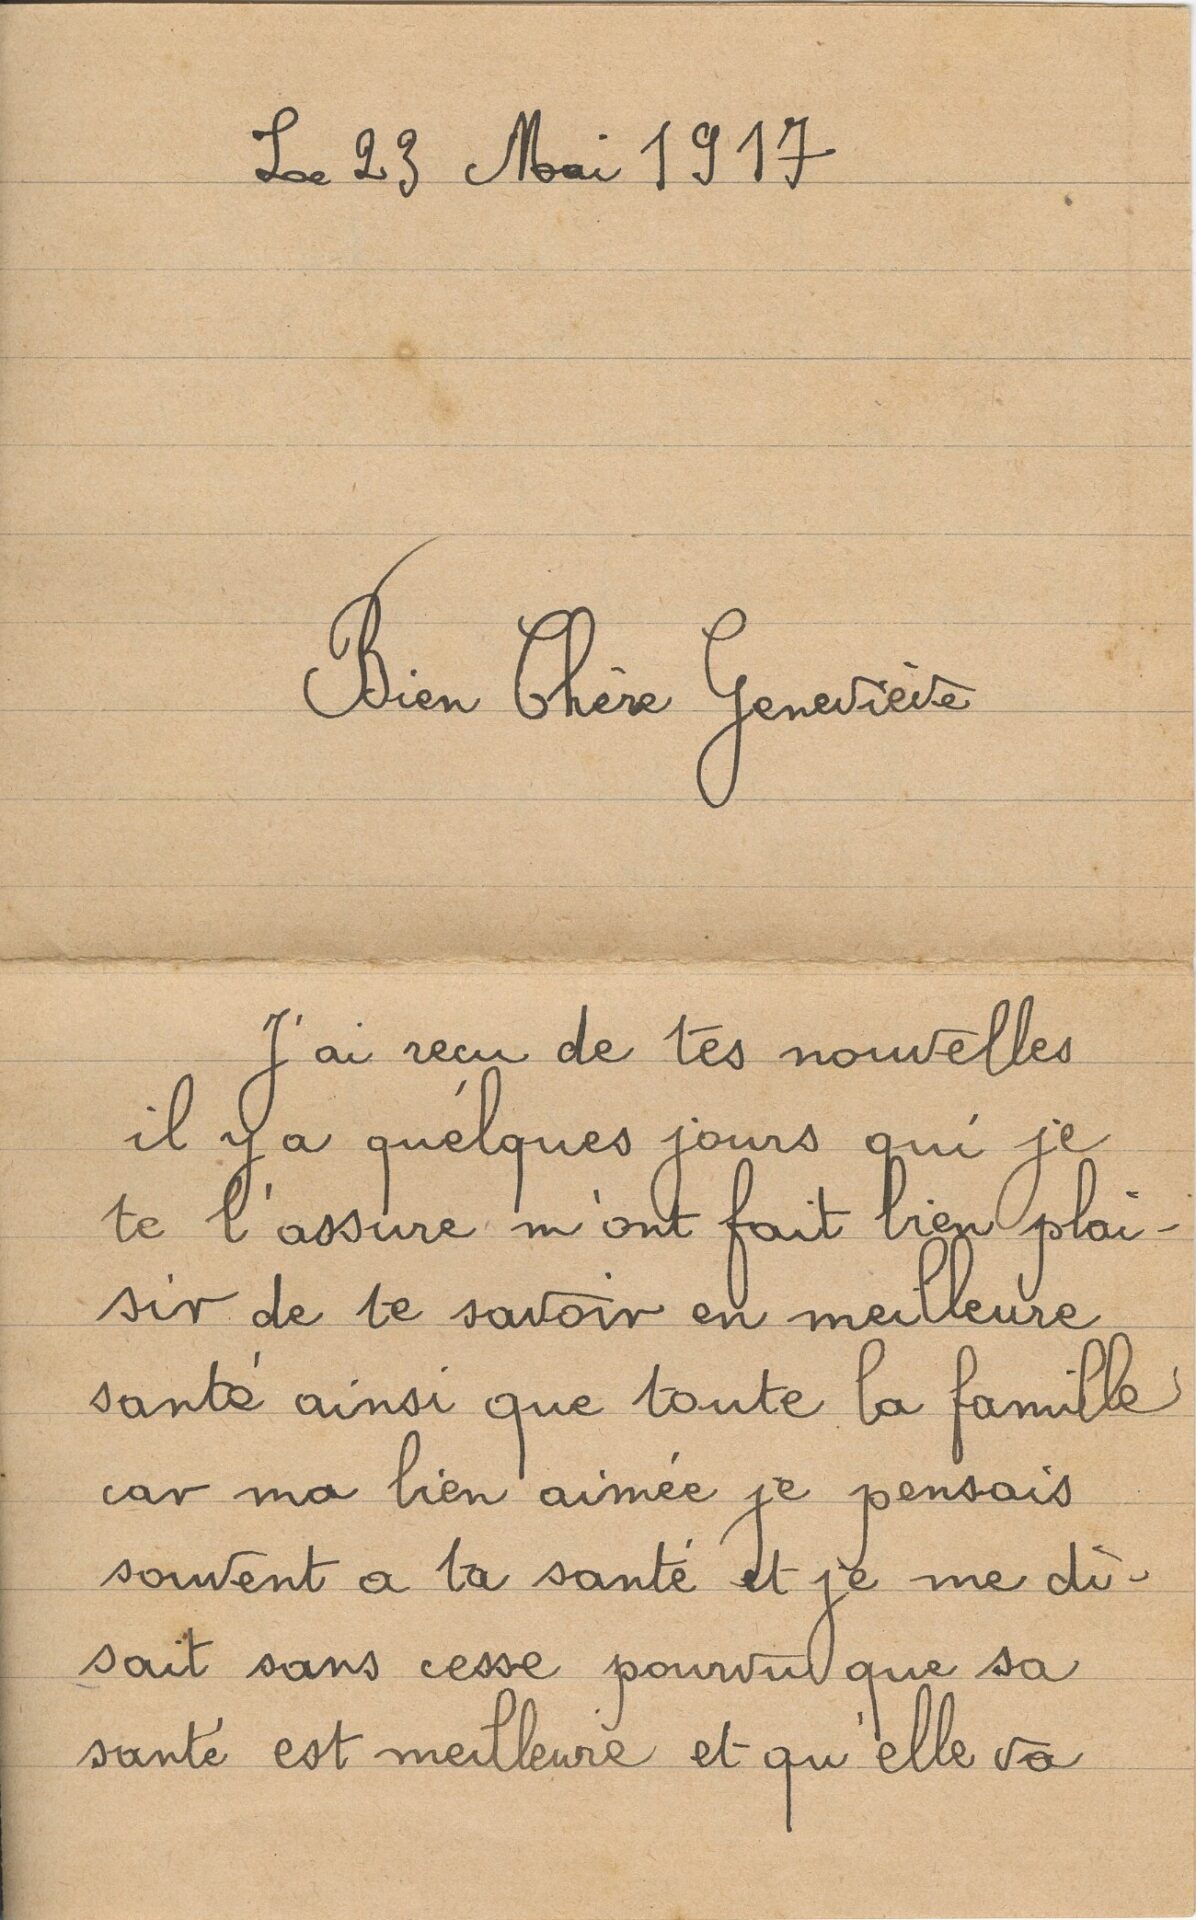 Le 23 Mai 1917
Bien Chère Geneviève
J'ai reçu de tes nouvelles
il y a quélques jours qui je
te l'assure m'ont fait bien plai-
sir de te savoir en meilleure
santé ainsi que toute la famille
car ma bien aimée je pensais
souvent a ta santé et je me di-
sait sans cesse pourvu que sa
santé est meilleure et qu'elle va